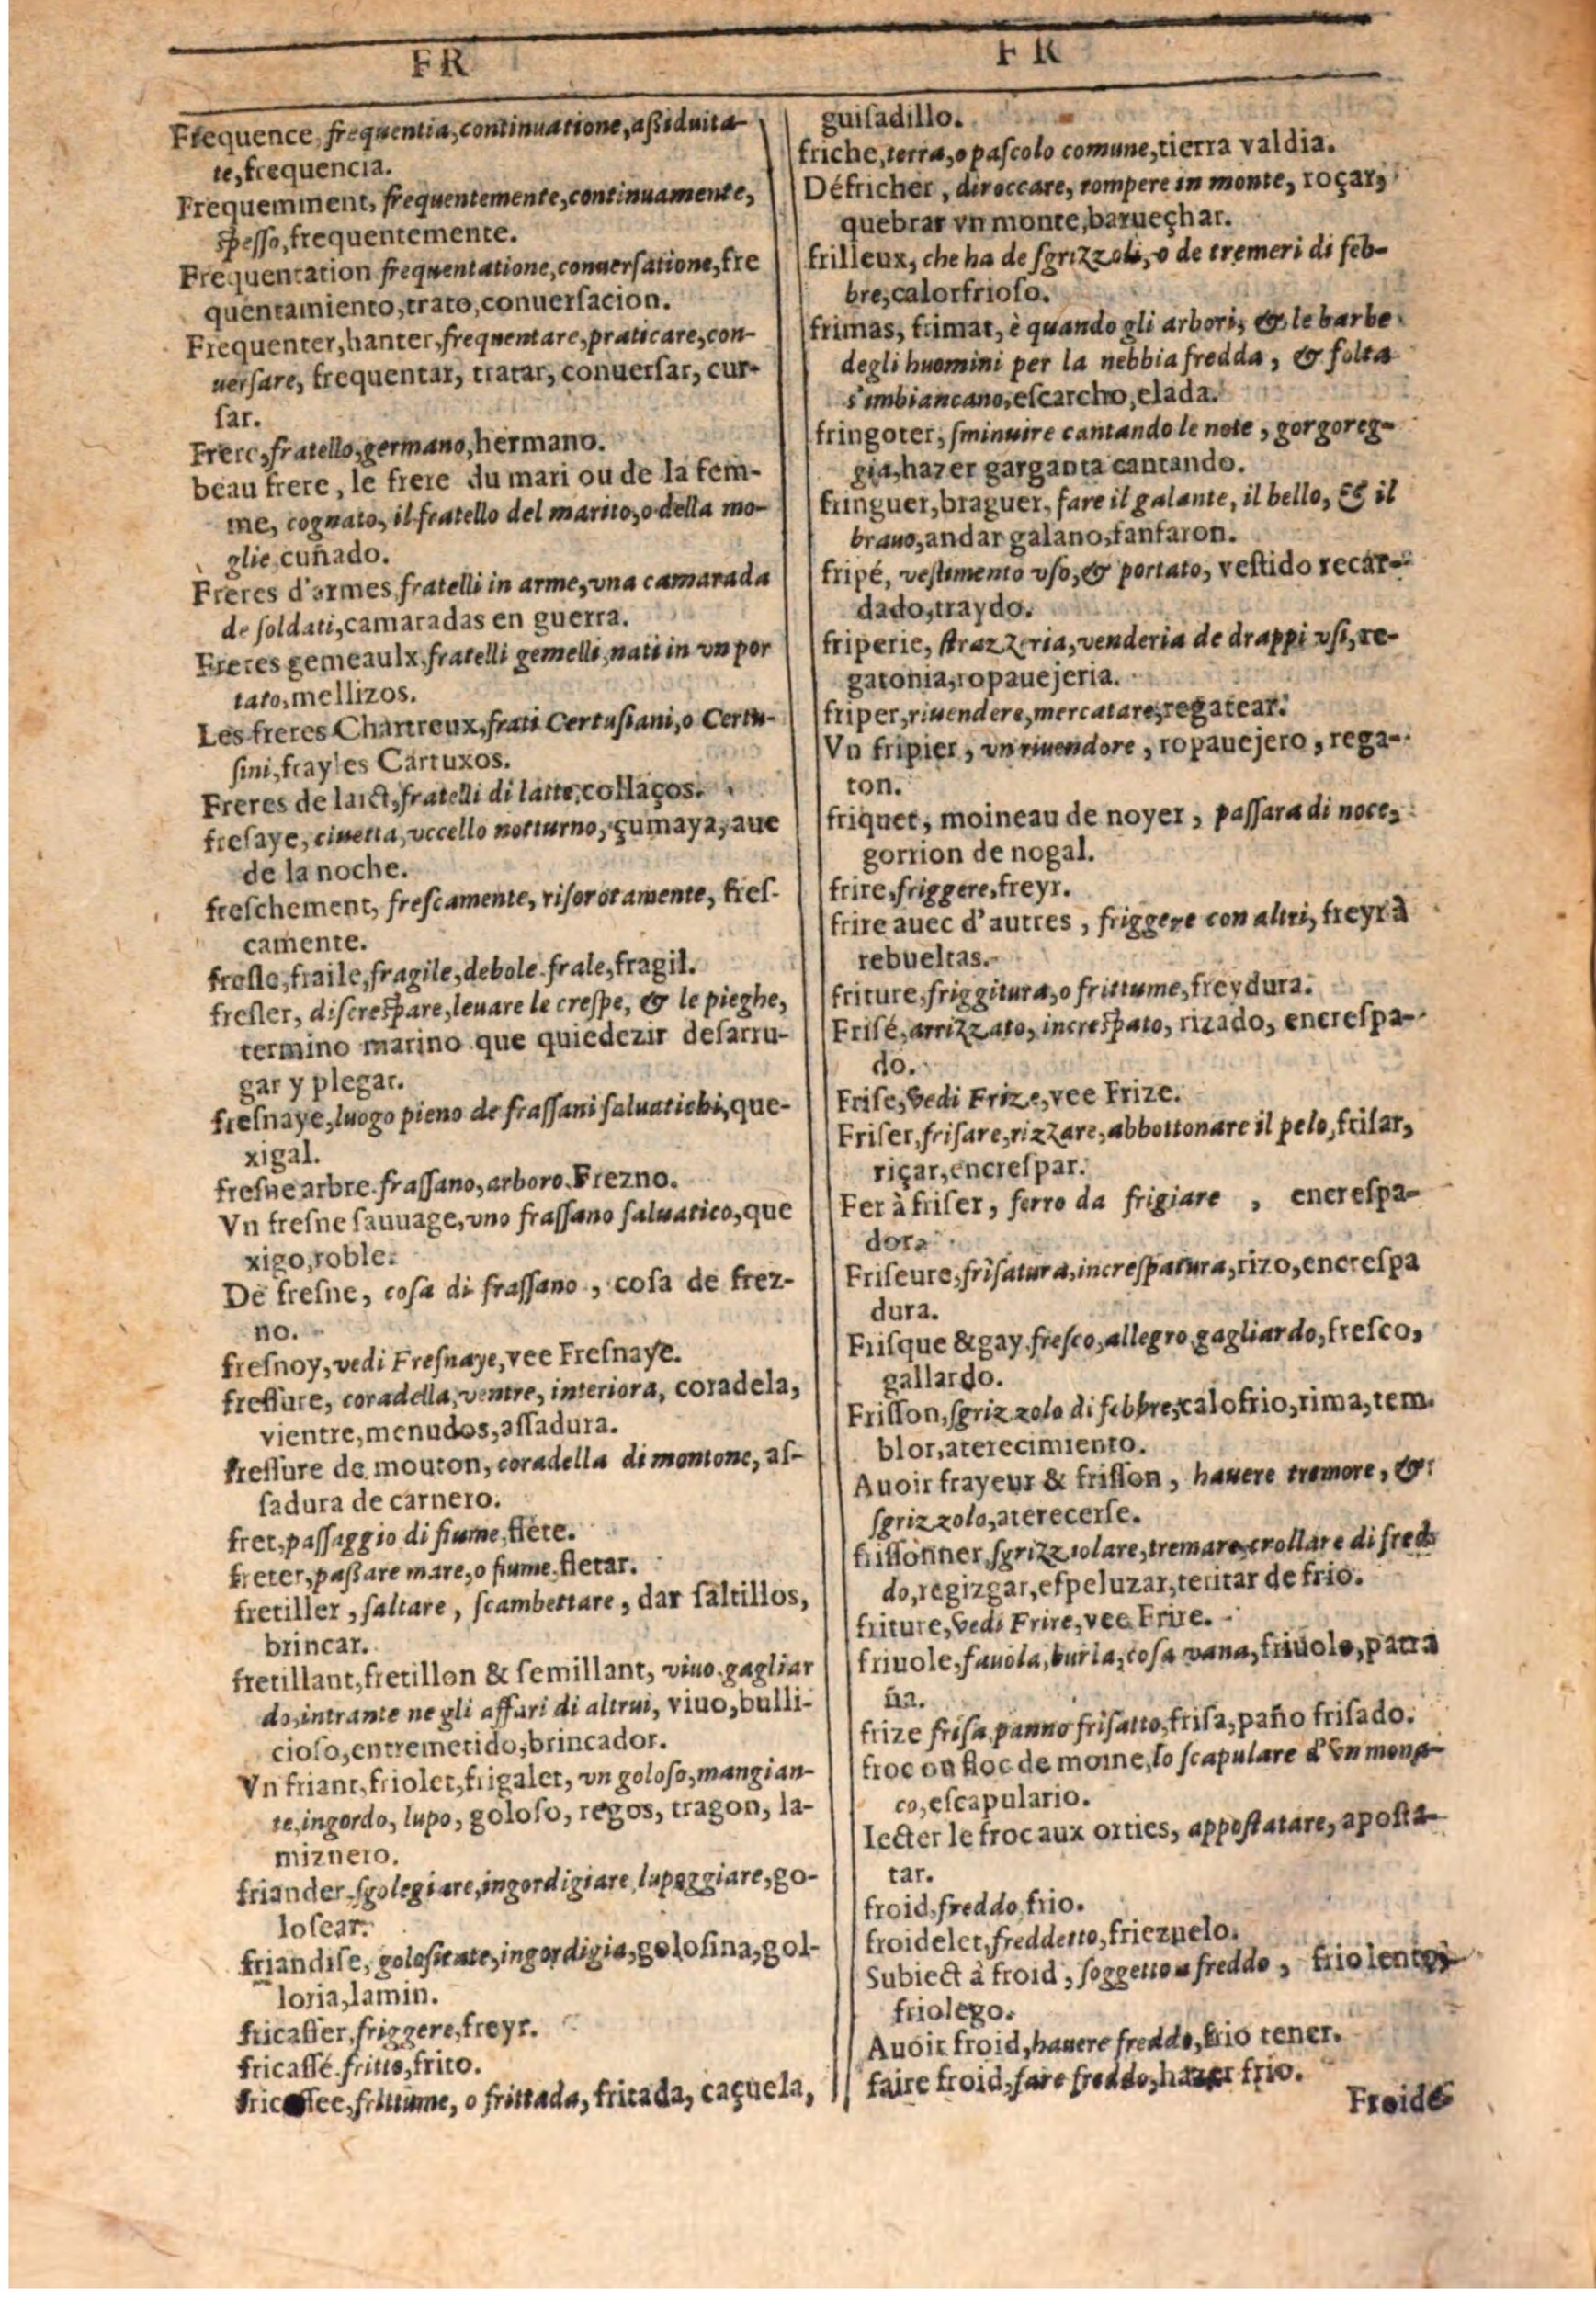 FR
FR
Frequence, frequentia, continuatione, aßiduita-
te, frequencia.
Frequemment, frequentemente, continuamente,
speſſo, frequentemente.
Frequentation frequentatione, conuerſatione, fre
quentamiento, trato, conuerſacion.
Frequenter, hanter, frequentare, praticare, con-
uerſare, frequentar, tratar, conuerſar, cur-
ſar.
Frere, fratello, germano, hermano.
beau frere, le frere du mari ou de la fem-
me, cognato, il fratello del marito, o della mo-
glie, cuñado.
Freres d'armes, fratelli in arme, vna camarada
de ſoldati, camaradas en guerra.
Freres gemeaulx, fratelli gemelli, nati in vn por
tato, mellizos.
Les freres Chartreux, frati Certuſiani, o Certu-
ſini, frayles Cartuxos.
Freres de laict, fratelli di latte, collaços.
freſaye, ciuetta, vccello notturno, çumaya, aue
de la noche.
freſchement, freſcamente, riſorotamente, freſ-
camente.
freſle, fraile, fragile, debole. frale, fragil.
freſler, diſcreſpare, leuare le creſpe, & le pieghe,
termino marino que quiedezir deſarru-
gar y plegar.
freſnaye, luogo pieno de fraſſani ſaluatichi, que-
xigal.
freſne arbre. fraſſano, arboro. Frezno.
Vn freſne ſauuage, vno fraſſano ſaluatico, que
xigo, roble.
De freſne, coſa di fraſſano, coſa de frez-
no.
freſnoy, vedi Freſnaye, vee Freſnaye.
freſſure, coradella, ventre, interiora, coradela,
vientre, menudos, aſſadura.
freſſure de mouton, coradella di montone, aſ-
ſadura de carnero.
fret, paſſaggio di fiume, flete.
freter, paßare mare, o fiume, fletar.
fretiller, ſaltare, ſcambettare, dar ſaltillos,
brincar.
fretillant, fretillon & ſemillant, viuo. gagliar
do, intrante ne gli affari di altrui, viuo, bulli-
cioſo, entremetido, brincador.
Vn friant, friolet, frigalet, vn goloſo, mangian-
te, ingordo, lupo, goloſo, regos, tragon, la-
miznero.
friander, ſgolegiare, ingordigiare, lupeggiare, go-
loſear.
friandiſe, goloſitate, ingordigia, goloſina, gol-
loria, lamin.
fricaſſer, friggere, freyr.
fricaſſé. fritto, frito.
fricaſſee, frittume, o frittada, fritada, caçuela,
guiſadillo.
friche, terra, o paſcolo comune, tierra valdia.
Défricher, diroccare, rompere in monte, roçar,
quebrar vn monte, barueçhar.
frilleux, che ha de ſgrizzoli, o de tremeri di feb-
bre, calorfrioſo.
frimas, frimat, è quando gli arbori, & le barbe
degli huomini per la nebbia fredda, & folta
s'imbiancano, eſcarcho, elada.
fringoter, ſminuire cantando le note, gorgoreg-
gia, hazer garganta cantando.
fringuer, braguer, fare il galante, il bello, & il
brauo, andar galano, fanfaron.
fripé, veſtimento vſo, & portato, veſtido recar-
dado, traydo.
friperie, ſtrazzeria, venderia de drappi vſi, re-
gatonia, ropauejeria.
friper, riuendere, mercatare, regatear.
Vn fripier, vn riuendore, ropauejero, rega-
ton.
friquet, moineau de noyer, paſſara di noce,
gorrion de nogal.
frire, friggere, freyr.
frire auec d'autres, friggere con altri, freyr à
rebueltas.
friture, friggitura, o frittume, freydura.
Friſé, arrizzato, increſpato, rizado, encreſpa-
do.
Friſe, vedi Frize, vee Frize.
Friſer, friſare, rizzare, abbottonare il pelo, friſar,
riçar, encreſpar.
Fer à friſer, ferro da frigiare, encreſpa-
dor.
Friſeure, friſatura, increſpatura, rizo, encreſpa
dura.
Friſque & gay. freſco, allegro, gagliardo, freſco,
gallardo.
Friſſon, ſgrizzolo di febbre, calofrio, rima, tem.
blor, aterecimiento.
Auoir frayeur & friſſon, hauere tremore, &
ſgrizzolo, aterecerſe.
friſſonner, ſgrizzolare, tremare, crollare di fred
do, regizgar, eſpeluzar, teritar de frio.
friture, vedi Frire, vee Frire.
friuole, fauola, burla, coſa vana, friuolo, patra
ña.
frize friſa, panno friſatto, friſa, paño friſado.
froc ou floc de moine, lo ſcapulare d'vn mona-
co, eſcapulario.
Iecter le froc aux orties, appoſtatare, apoſta-
tar.
froid, freddo, frio.
froidelet, freddetto, friezuelo.
Subiect à froid, ſoggetto a freddo, friolento,
friolego.
Auoir froid, hauere freddo, frio tener.
faire froid, fare freddo, hazer frio.
Froide